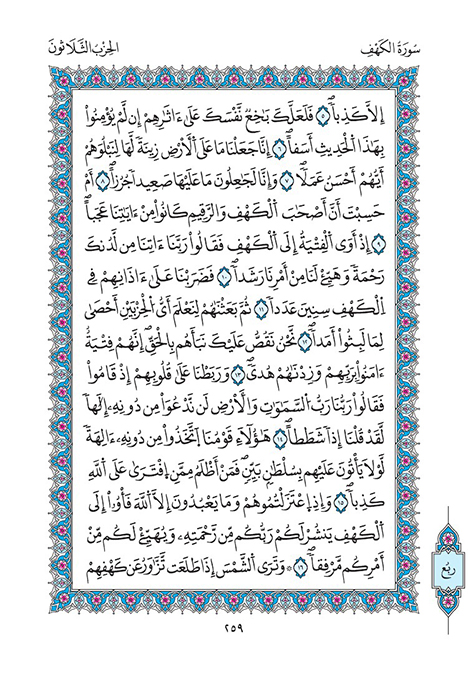 سُورَةُ الكَهْفِ
الحِزْبُ الثَّلَاثُونَ
إِلَّا كَذِباً ۝٥ فَلَعَلَّكَ بَٰخِعٞ نَّفْسَكَ عَلَىٰٓ ءَاثَٰرِهِمُۥٓ إِن لَّمْ يُؤْمِنُواْ
بِهَٰذَا اَ۬لْحَدِيثِ أَسَفاً ۝٦ إِنَّا جَعَلْنَا مَا عَلَى اَ۬لْأَرْضِ زِينَةٗ لَّهَا لِنَبْلُوَهُمُۥٓ
أَيُّهُمُۥٓ أَحْسَنُ عَمَلاً ۝٧ وَإِنَّا لَجَٰعِلُونَ مَا عَلَيْهَا صَعِيداٗ جُرُزاً ۝٨ أَمْ
حَسِبْتَ أَنَّ أَصْحَٰبَ اَ۬لْكَهْفِ وَالرَّقِيمِ كَانُواْ مِنَ ءَايَٰتِنَا عَجَباً
۝٩ إِذَ اَوَى اَ۬لْفِتْيَةُ إِلَى اَ۬لْكَهْفِ فَقَالُواْ رَبَّنَآ ءَاتِنَا مِن لَّدُنكَ
رَحْمَةٗ وَهَيِّۓْ لَنَا مِنَ اَمْرِنَا رَشَداٗ ۝١٠ فَضَرَبْنَا عَلَىٰٓ ءَاذَانِهِمْ فِے
اِ۬لْكَهْفِ سِنِينَ عَدَداٗ ۝١١ ثُمَّ بَعَثْنَٰهُمْ لِنَعْلَمَ أَيُّ اُ۬لْحِزْبَيْنِ أَحْصَىٰ
لِمَا لَبِثُوٓاْ أَمَداٗ ۝١٢ نَّحْنُ نَقُصُّ عَلَيْكَ نَبَأَهُم بِالْحَقِّ إِنَّهُمْ فِتْيَةٌ
ءَامَنُواْ بِرَبِّهِمْ وَزِدْنَٰهُمْ هُدىٗ ۝١٣ وَرَبَطْنَا عَلَىٰ قُلُوبِهِمُۥٓ إِذْ قَامُواْ
فَقَالُواْ رَبُّنَا رَبُّ اُ۬لسَّمَٰوَٰتِ وَالْأَرْضِ لَن نَّدْعُوَاْ مِن دُونِهِۦٓ إِلَٰهاٗ
لَّقَدْ قُلْنَآ إِذاٗ شَطَطاً ۝١٤ هَٰٓؤُلَآءِ قَوْمُنَا اَ۪تَّخَذُواْ مِن دُونِهِۦٓ ءَالِهَةٗ
لَّوْلَا يَأْتُونَ عَلَيْهِم بِسُلْطَٰنِۢ بَيِّنٖ فَمَنَ اَظْلَمُ مِمَّنِ اِ۪فْتَرَىٰ عَلَى اَ۬للَّهِ
كَذِباٗ ۝١٥ وَإِذِ اِ۪عْتَزَلْتُمُوهُمْ وَمَا يَعْبُدُونَ إِلَّا اَ۬للَّهَ فَأْوُۥٓاْ إِلَى
اَ۬لْكَهْفِ يَنشُرْ لَكُمْ رَبُّكُم مِّن رَّحْمَتِهِۦ وَيُهَيِّۓْ لَكُم مِّنَ
اَمْرِكُم مَّرْفِقاٗ ۝١٦ ۞ وَتَرَى اَ۬لشَّمْسَ إِذَا طَلَعَت تَّزَّٰوَرُ عَن كَهْفِهِمْ
ربع
٢٥٩